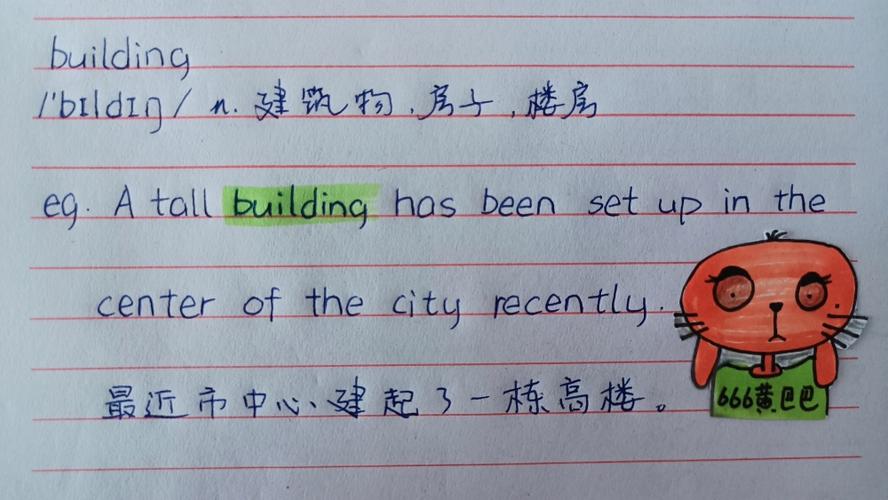 building
/'bɪldɪŋ/ n. 建筑物，房子，楼房
eg. A tall building has been set up in the
center of the city recently.
最近市中心、建起了一栋高楼。
666黄巴巴